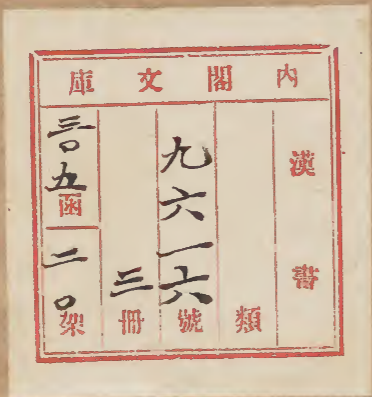 內閣文庫
漢書
類
九六一六號
三冊
三〇五函
二〇架